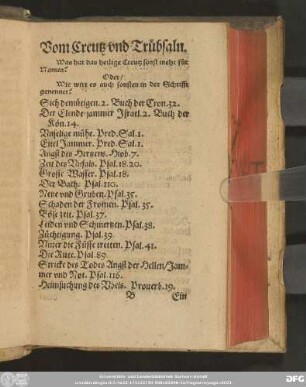 Vom Creutz vnd Trübsaln.
Was hat das heilige Creutz sonst mehr für
Namen?
Oder/
Wie wird es auch sonsten in der Schrifft
genennet?
Sich demütigen. 2. Buch der Cron. 32.
Der Elende jammer Israel. 2. Buch der
Kön. 14.
Vnselige mühe. Pred. Sal. 1.
Eitel Jammer. Pred. Sal. 1.
Angst des Hertzens. Hiob. 7.
Zeit des Vnfals. Psal. 18. 20.
Grosse Wasser. Psal. 18.
Der Bach. Psal. 110.
Netze vnd Gruben. Psal. 35.
Schaden der Frommen. Psal. 35.
Böse zeit. Psal. 37.
Leiden vnd Schmertzen. Psal. 38.
Züchtigung. Psal. 39
Vnter die Füsse tretten. Psal. 41.
Die Rute. Psal. 89.
Stricke des Todes Angst der Hellen/Jam-
mer vnd Not. Psal. 116.
Heimsuchung des Vbels. Prouerb. 19.
B Ein